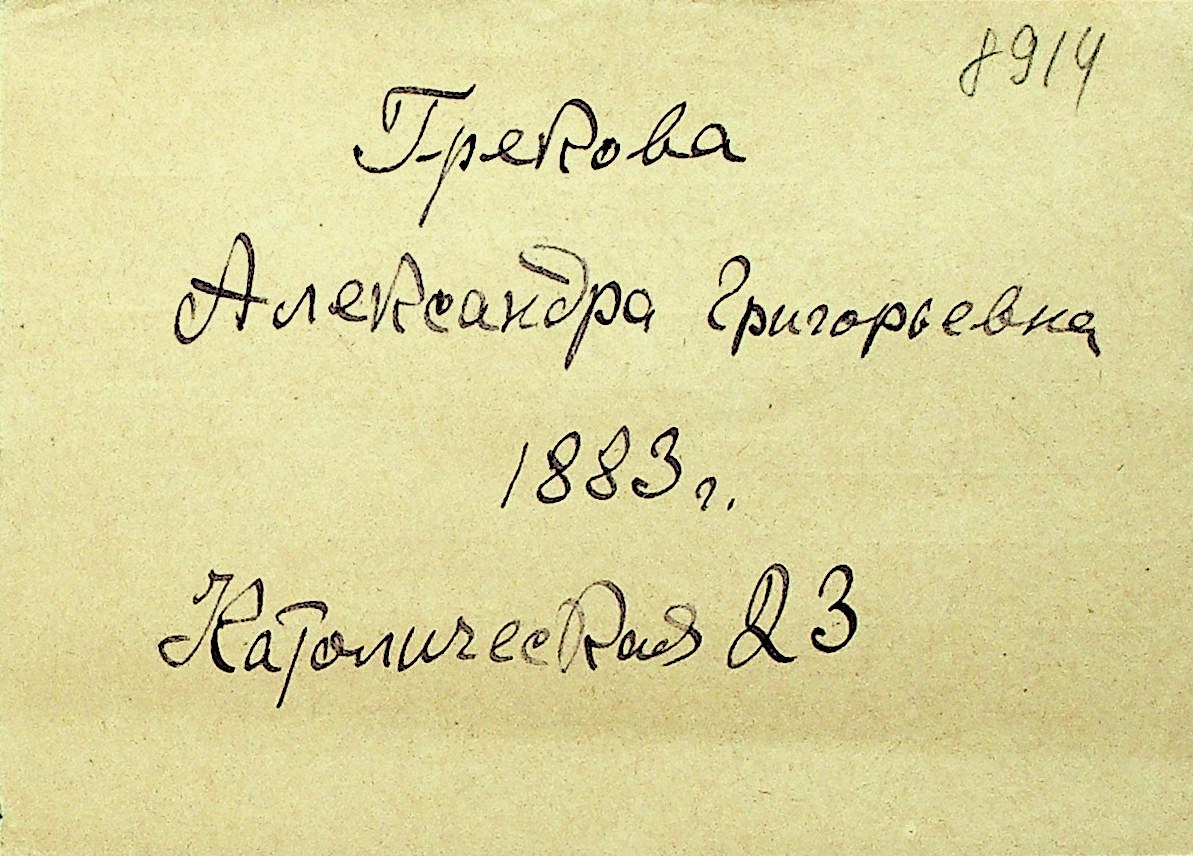 8914
Грекова
Александра Григорьевна
1883 г.
Католическая 23